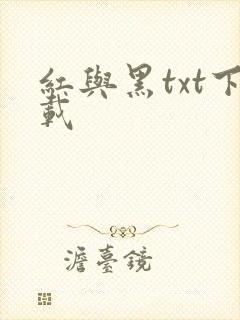 紅與黑txt下
載
澹臺鏡